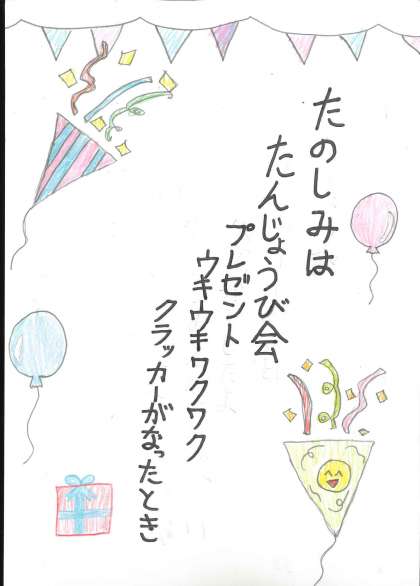 たのしみは
たんじょうび会
プレゼント
ウキウキワクワク
クラッカーがなったとき